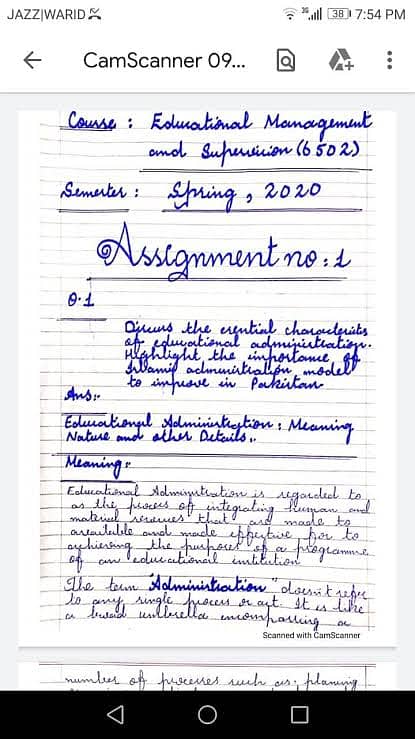 JAZZ|WARID
3G
38
7:54 PM
CamScanner 09...
Course : Educational Management
and Supervision (6502)
Semester : Spring, 2020
Assignment no : 1
Q.1
Discuss the essential characteristics
of educational administration.
Highlight the importance of
Islamic administration model
to improve in Pakistan
Ans:-
Educational Administration : Meaning
Nature and other Details:-
Meaning:-
Educational Administration is regarded to
as the process of integrating human and
material resources that are made to
available and made effective for to
achieving the purposes of a programme
of an educational institution
The term "Administration" doesn't refer
to any single process or act. It is like
a broad umbrella encompassing a
Scanned with CamScanner
number of processes such as: planning